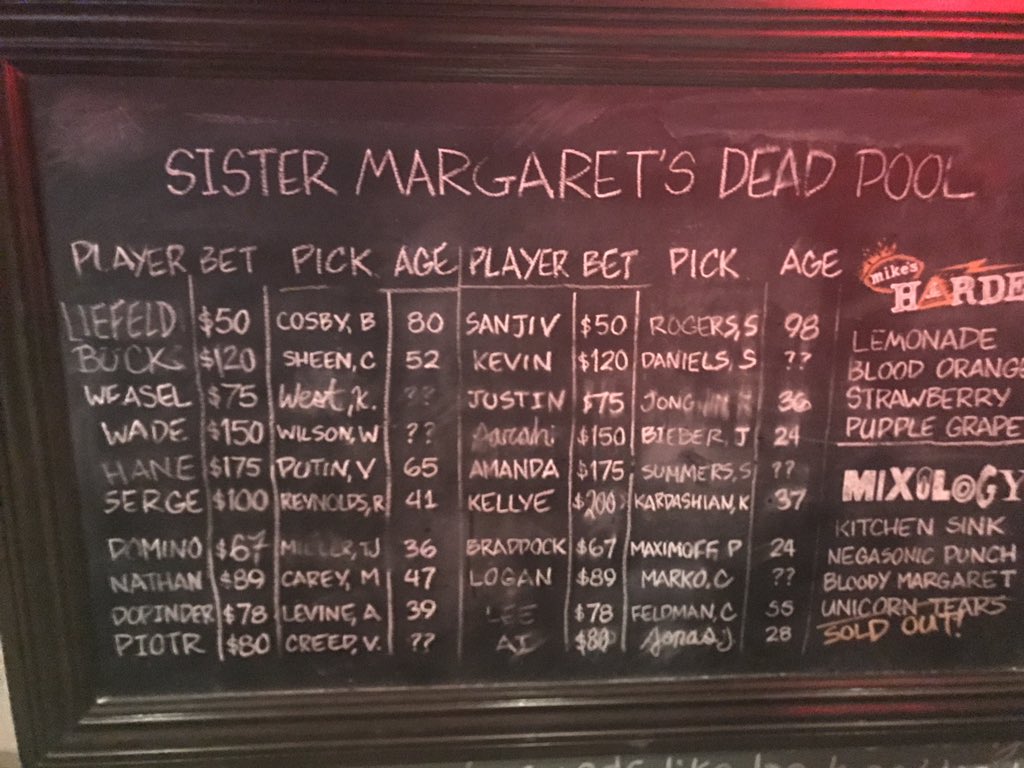 SISTER MARGARET'S DEAD POOL
PLAYER BET PICK AGE PLAYER BET PICK AGE
LIEFELD $50 COSBY, B 80 SANJIV $50 ROGERS, S 98
BUCK $120 SHEEN, C 52 KEVIN $120 DANIELS, S ??
WEASEL $75 West, K. ?? JUSTIN $75 JONG 36
WADE $150 WILSON, W ?? Sarah $150 BIEBER, J 24
HANE $175 PUTIN, V 65 AMANDA $175 SUMMERS, S ??
SERGE $100 REYNOLDS, R 41 KELLYE $200 KARDASHIAN, K 37
DOMINO $67 MILLER, TJ 36 BRADDOCK $67 MAXIMOFF, P 24
NATHAN $89 CAREY, M 47 LOGAN $89 MARKO, C ??
DOPINDER $78 LEVINE, A 39 LEE $78 FELDMAN, C 55
PIOTR $80 CREED, V. ?? AI $80 Jonas, J 28
mike's
HARDE
LEMONADE
BLOOD ORANGE
STRAWBERRY
PURPLE GRAPE
MIXOLOGY
KITCHEN SINK
NEGASONIC PUNCH
BLOODY MARGARET
UNICORN TEARS
SOLD OUT!